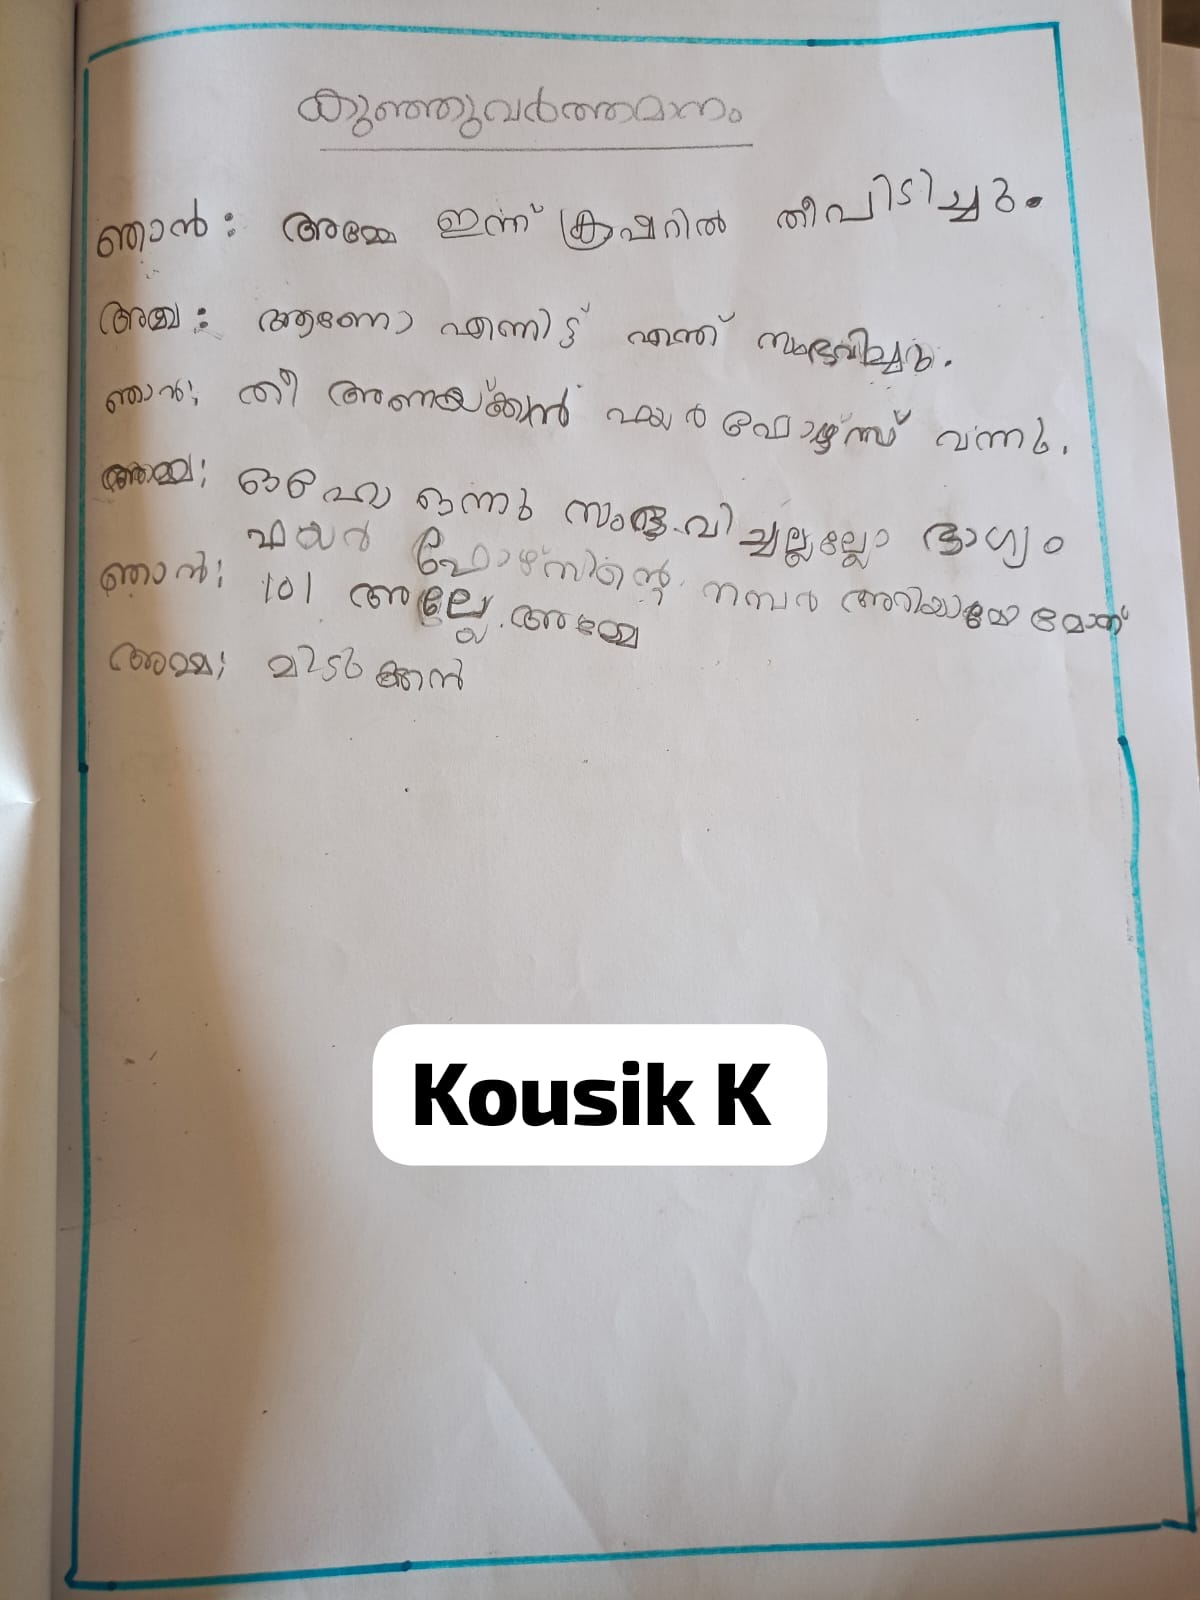 കുഞ്ഞുവർത്തമാനം
ഞാൻ: അമ്മേ ഇന്ന് ക്രഷറിൽ തീപിടിച്ചു.
അമ്മ: ആണോ എന്നിട്ട് എന്ത് സംഭവിച്ചു.
ഞാൻ: തീ അണയ്ക്കാൻ ഫയർ ഫോഴ്സ് വന്നു.
അമ്മ: ഓഹോ ഒന്നും സംഭവിച്ചല്ലല്ലോ ഭാഗ്യം
ഫയർ ഫോഴ്സിന്റെ നമ്പർ അറിയാമോ മോന്
ഞാൻ: 101 അല്ലേ അമ്മേ
അമ്മ: മിടുക്കൻ
Kousik K